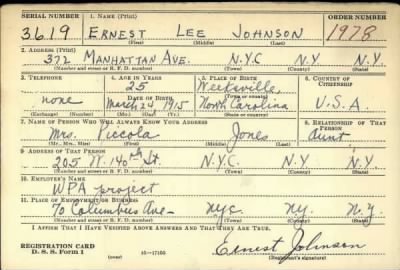 SERIAL NUMBER 1. NAME (Print) ORDER NUMBER
3619 ERNEST LEE JOHNSON 1978
(First) (Middle) (Last)
2. ADDRESS (Print)
372 MANHATTAN AVE. N.Y.C N.Y. N.Y.
(Number and street or R. F. D. number) (Town) (County) (State)
3. TELEPHONE 4. AGE IN YEARS 5. PLACE OF BIRTH 6. COUNTRY OF CITIZENSHIP
25 Weeksville,
DATE OF BIRTH (Town or county)
none March 24 1915 North Carolina U.S.A.
(Exchange) (Number) (Mo.) (Day) (Yr.) (State or country)
7. NAME OF PERSON WHO WILL ALWAYS KNOW YOUR ADDRESS 8. RELATIONSHIP OF THAT PERSON
Mrs. Viccola Jones Aunt
(Mr., Mrs., Miss) (First) (Middle) (Last)
9. ADDRESS OF THAT PERSON
205 W. 140th St. N.Y.C. N.Y. N.Y.
(Number and street or R. F. D. number) (Town) (County) (State)
10. EMPLOYER'S NAME
WPA project
11. PLACE OF EMPLOYMENT OR BUSINESS
70 Columbus Ave- nyc. ny. n.y.
(Number and street or R. F. D. number) (Town) (County) (State)
I AFFIRM THAT I HAVE VERIFIED ABOVE ANSWERS AND THAT THEY ARE TRUE.
REGISTRATION CARD Ernest Johnson
D. S. S. Form 1 (over) 16—17105 (Registrant's signature)